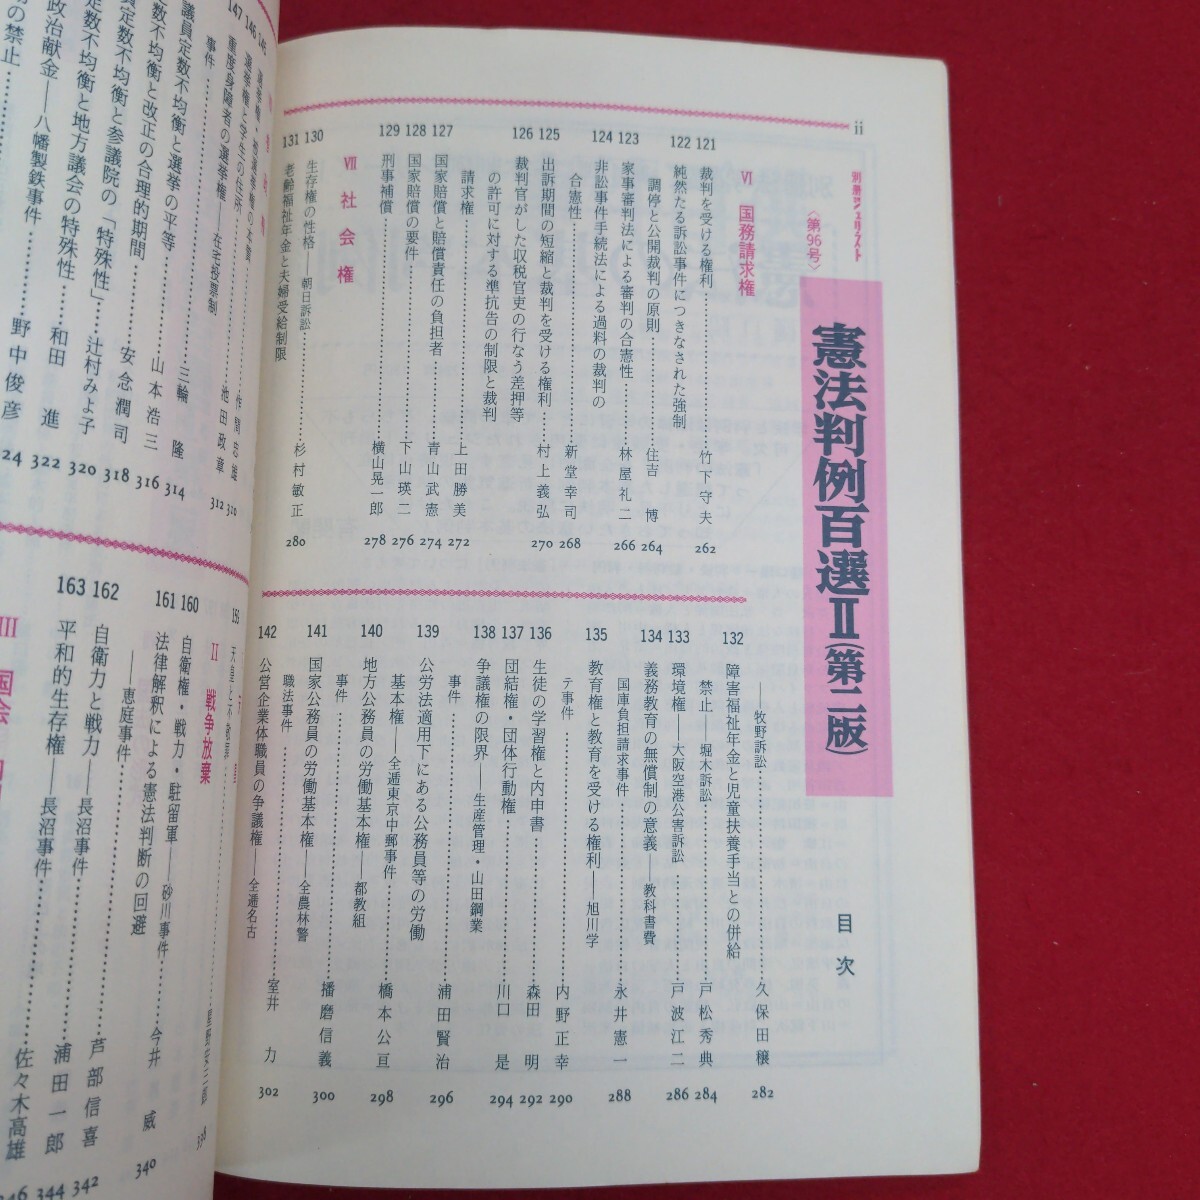 ii
別冊ジュリスト
〈第96号〉
憲法判例百選Ⅱ(第二版)
目次
Ⅵ 国務請求権
121 裁判を受ける権利……竹下守夫 262
122 純然たる訴訟事件につきなされた強制
調停と公開裁判の原則……住吉 博 264
123 家事審判法による審判の合憲性……林屋礼二 266
124 非訟事件手続法による過料の裁判の
合憲性……新堂幸司 268
125 出訴期間の短縮と裁判を受ける権利……村上義弘 270
126 裁判官がした収税官吏の行なう差押等
の許可に対する準抗告の制限と裁判
請求権……上田勝美 272
127 国家賠償と賠償責任の負担者……青山武憲 274
128 国家賠償の要件……下山瑛二 276
129 刑事補償……横山晃一郎 278
Ⅶ 社会権
130 生存権の性格――朝日訴訟……杉村敏正 280
131 老齢福祉年金と夫婦受給制限
――牧野訴訟……久保田穣 282
132 障害福祉年金と児童扶養手当との併給
禁止――堀木訴訟……戸松秀典 284
133 環境権――大阪空港公害訴訟……戸波江二 286
134 義務教育の無償制の意義――教科書費
国庫負担請求事件……永井憲一 288
135 教育権と教育を受ける権利――旭川学
テ事件……内野正幸 290
136 生徒の学習権と内申書……森田 明 292
137 団結権・団体行動権……川口 是 294
138 争議権の限界――生産管理・山田鋼業
事件……浦田賢治 296
139 公労法適用下にある公務員等の労働
基本権――全逓東京中郵事件……橋本公亘 298
140 地方公務員の労働基本権――都教組
事件……播磨信義 300
141 国家公務員の労働基本権――全農林警
職法事件……室井 力 302
142 公営企業体職員の争議権――全逓名古
145
146 選挙権・被選挙権の本質
147 選挙権と学生の住所……作間忠雄 310
重度身障者の選挙権――在宅投票制
事件……池田政章 312
議員定数不均衡と選挙の平等……三輪 隆 314
数不均衡と改正の合理的期間……山本浩三 316
定数不均衡と参議院の「特殊性」……安念潤司 318
定数不均衡と地方議会の特殊性……辻村みよ子 320
政治献金――八幡製鉄事件……和田 進 322
の禁止……野中俊彦 24
Ⅱ 戦争放棄
338
160 自衛権・戦力・駐留軍――砂川事件……今井 威 340
161 法律解釈による憲法判断の回避
――恵庭事件……芦部信喜 342
162 自衛力と戦力――長沼事件……浦田一郎 344
163 平和的生存権――長沼事件……佐々木高雄 346
Ⅲ 国会